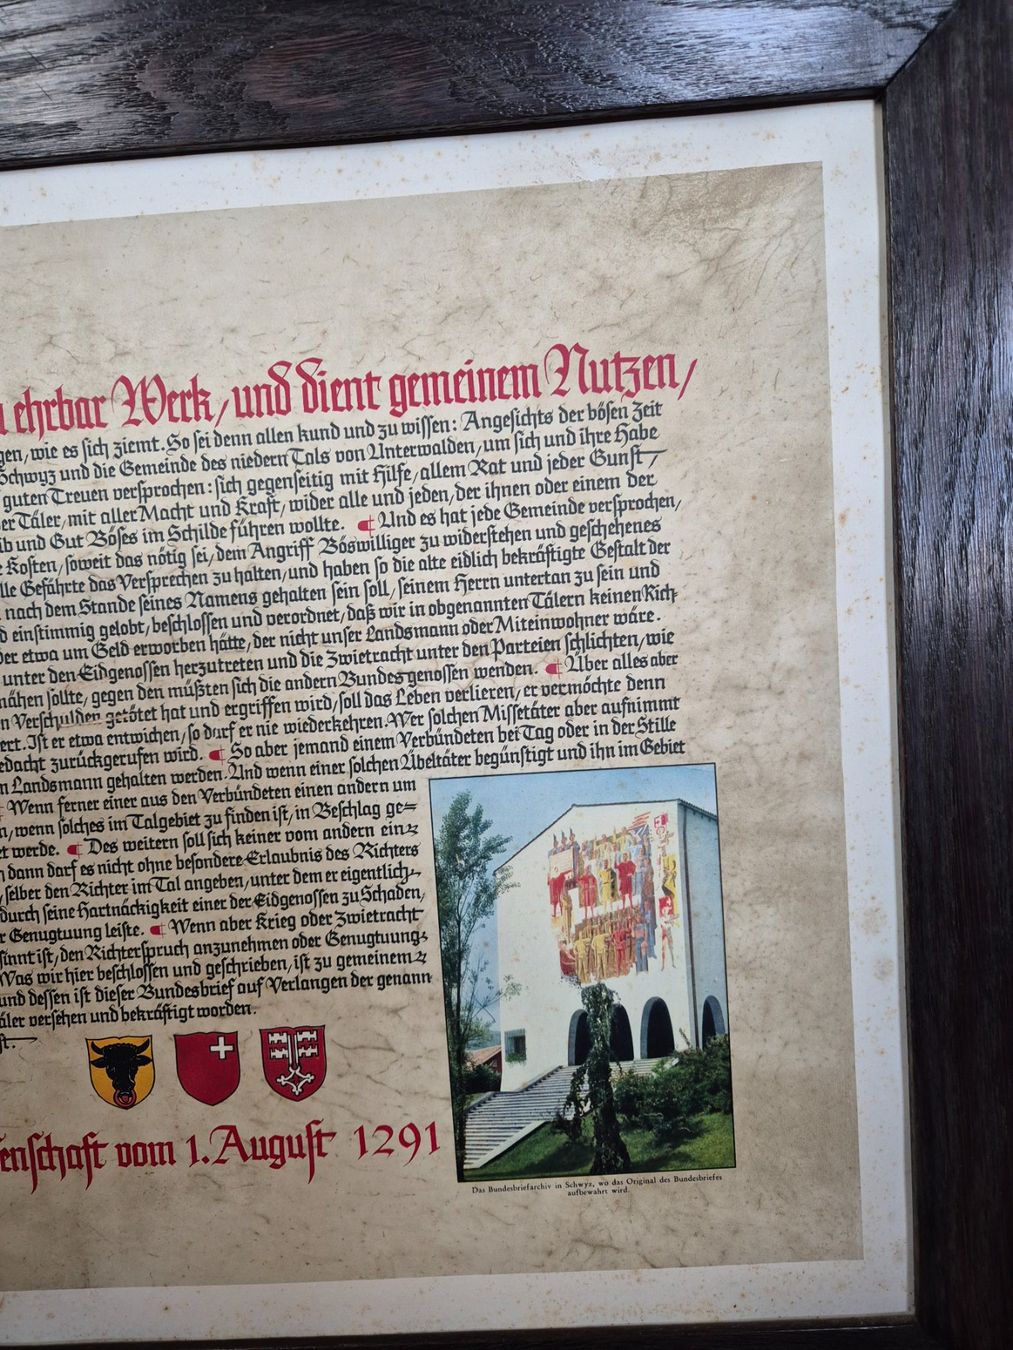 ehrbar Werk, und dient gemeinem Nutzen,
gen, wie es sich ziemt. So sei denn allen kund und zu wissen: Angesichts der bösen Zeit
Schwyz und die Gemeinde des niedern Tals von Unterwalden, um sich und ihre Habe
guten Treuen versprochen: sich gegenseitig mit Hilfe, allem Rat und jeder Gunst,
er Täler, mit aller Macht und Kraft, wider alle und jeden, der ihnen oder einem der
ib und Gut Böses im Schilde führen wollte. ¶ Und es hat jede Gemeinde versprochen,
Kosten, soweit das nötig sei, dem Angriff Böswilliger zu widerstehen und geschehenes
lle Gefährte das Versprechen zu halten, und haben so die alte eidlich bekräftigte Gestalt der
nach dem Stande seines Namens gehalten sein soll, seinem Herrn untertan zu sein und
d einstimmig gelobt, beschlossen und verordnet, daß wir in obgenannten Tälern keinen Rich-
er etwa um Geld erworben hätte, der nicht unser Landsmann oder Miteinwohner wäre.
unter den Eidgenossen herzutreten und die Zwietracht unter den Parteien schlichten, wie
mähen sollte, gegen den müßten sich die andern Bundesgenossen wenden. ¶ Über alles aber
n Verschulden getötet hat und ergriffen wird, soll das Leben verlieren, er vermöchte denn
ert. Ist er etwa entwichen, so darf er nie wiederkehren. Wer solchen Missetäter aber aufnimmt
edacht zurückgerufen wird. ¶ So aber jemand einem Verbündeten bei Tag oder in der Stille
n Landsmann gehalten werden. Und wenn einer solchen Übeltäter begünstigt und ihn im Gebiet
¶ Wenn ferner einer aus den Verbündeten einen andern um
n, wenn solches im Talgebiet zu finden ist, in Beschlag ge=
et werde. ¶ Des weitern soll sich keiner vom andern ein=
dann darf es nicht ohne besondere Erlaubnis des Richters
, selber den Richter im Tal angeben, unter dem er eigentlich-
durch seine Hartnäckigkeit einer der Eidgenossen zu Schaden,
r Genugtuung leiste. ¶ Wenn aber Krieg oder Zwietracht
sinnt ist, den Richterspruch anzunehmen oder Genugtuung-
Was wir hier beschlossen und geschrieben, ist zu gemeinem
und dessen ist dieser Bundesbrief auf Verlangen der genann
äler versehen und bekräftigt worden.
st.
enschaft vom 1. August 1291
Das Bundesbriefarchiv in Schwyz, wo das Original des Bundesbriefes
aufbewahrt wird.